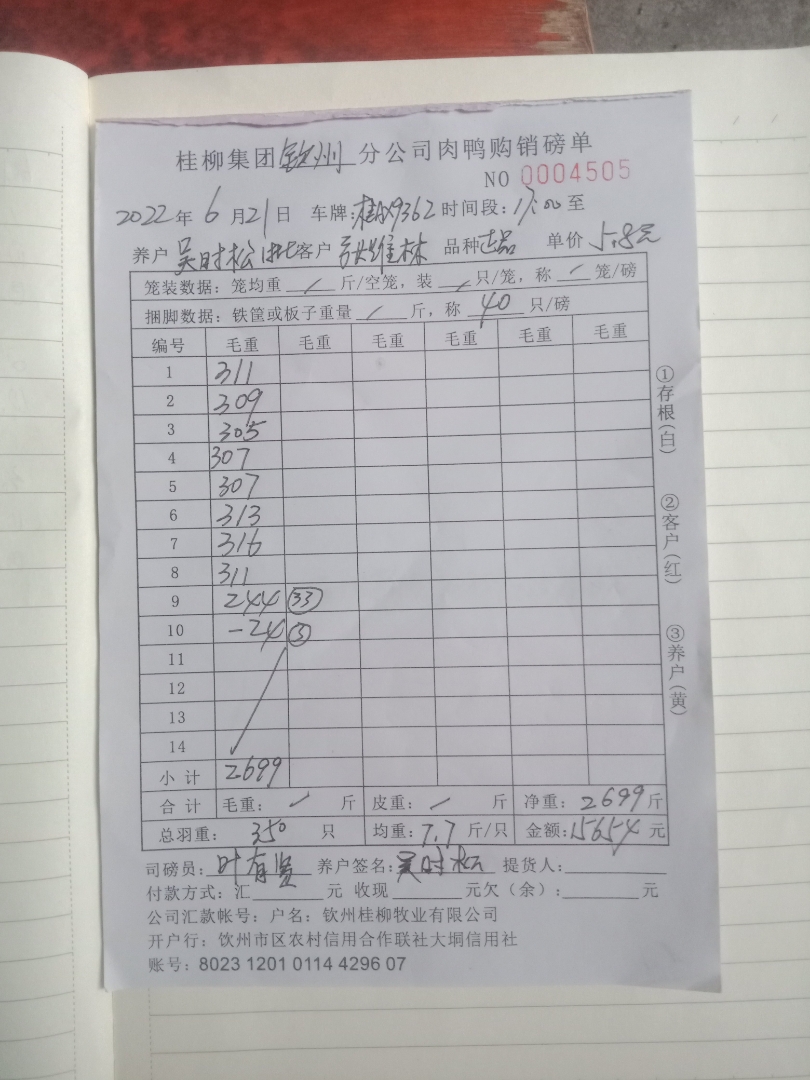 桂柳集团钦州分公司肉鸭购销磅单
NO 0004505
2022年6月21日 车牌: 时间段:17:00至
养户 吴时松 客户 张维林 品种 正品 单价 5.8元
笼装数据: 笼均重 / 斤/空笼, 装 / 只/笼, 称 / 笼/磅
捆脚数据: 铁筐或板子重量 / 斤, 称 40 只/磅
编号 毛重 毛重 毛重 毛重 毛重 毛重
1 311
2 309
3 305
4 307
5 307
6 313
7 316
8 311
9 244 33
10 -24 3
11
12
13
14
小计 2699
合计 毛重: / 斤 皮重: / 斤 净重: 2699斤
总羽重: 350 只 均重: 7.7 斤/只 金额: 15654 元
司磅员: 叶有 养户签名: 吴时松 提货人:
付款方式: 汇 元 收现 元欠(余): 元
公司汇款帐号: 户名: 钦州桂柳牧业有限公司
开户行: 饮州市区农村信用合作联社大垌信用社
账号: 8023 1201 0114 4296 07
①存根(白)
②客户(红)
③养户(黄)